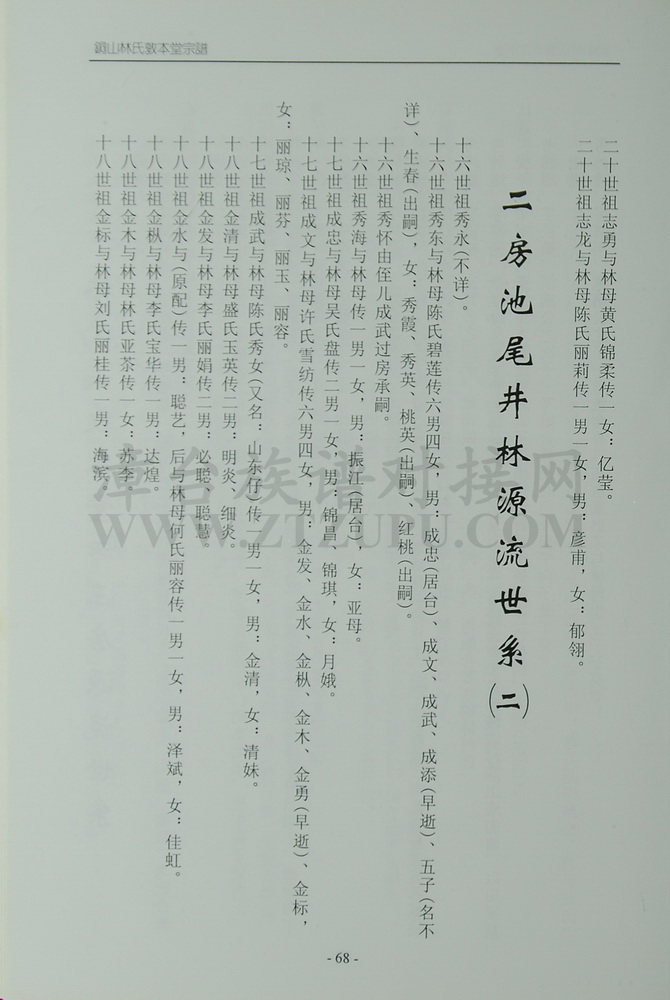 銅山林氏敦本堂宗譜
二十世祖志勇与林母黄氏锦柔传一女：亿莹。
二十世祖志龙与林母陈氏丽莉传一男一女，男：彦甫，女：郁翎。
二房池尾井林源流世系(二)
十六世祖秀永(不详)。
十六世祖秀东与林母陈氏碧莲传六男四女，男：成忠(居台)、成文、成武、成添(早逝)、五子(名不
详)、生春(出嗣)，女：秀霞、秀英、桃英(出嗣)、红桃(出嗣)。
十六世祖秀怀由侄儿成武过房承嗣。
十六世祖秀海与林母传一男一女，男：振江(居台)，女：亚母。
十七世祖成忠与林母吴氏盘传二男一女，男：锦昌、锦琪，女：月娥。
十七世祖成文与林母许氏雪纺传六男四女，男：金发、金水、金枞、金木、金勇(早逝)、金标，
女：丽琼、丽芬、丽玉、丽容。
十七世祖成武与林母陈氏秀女(又名：山东仔)传一男一女，男：金清，女：清妹。
十八世祖金清与林母盛氏玉英传二男：明炎、细炎。
十八世祖金发与林母李氏丽娟传二男：必聪、聪慧。
十八世祖金水与(原配)传一男：聪艺，后与林母何氏丽容传一男一女，男：泽斌，女：佳虹。
十八世祖金枞与林母李氏宝华传一男：达煌。
十八世祖金木与林母林氏亚茶传一女：苏李。
十八世祖金标与林母刘氏丽桂传一男：海滨。
漳台族谱对接网
WWW.ZTZUPU.COM
- 68 -